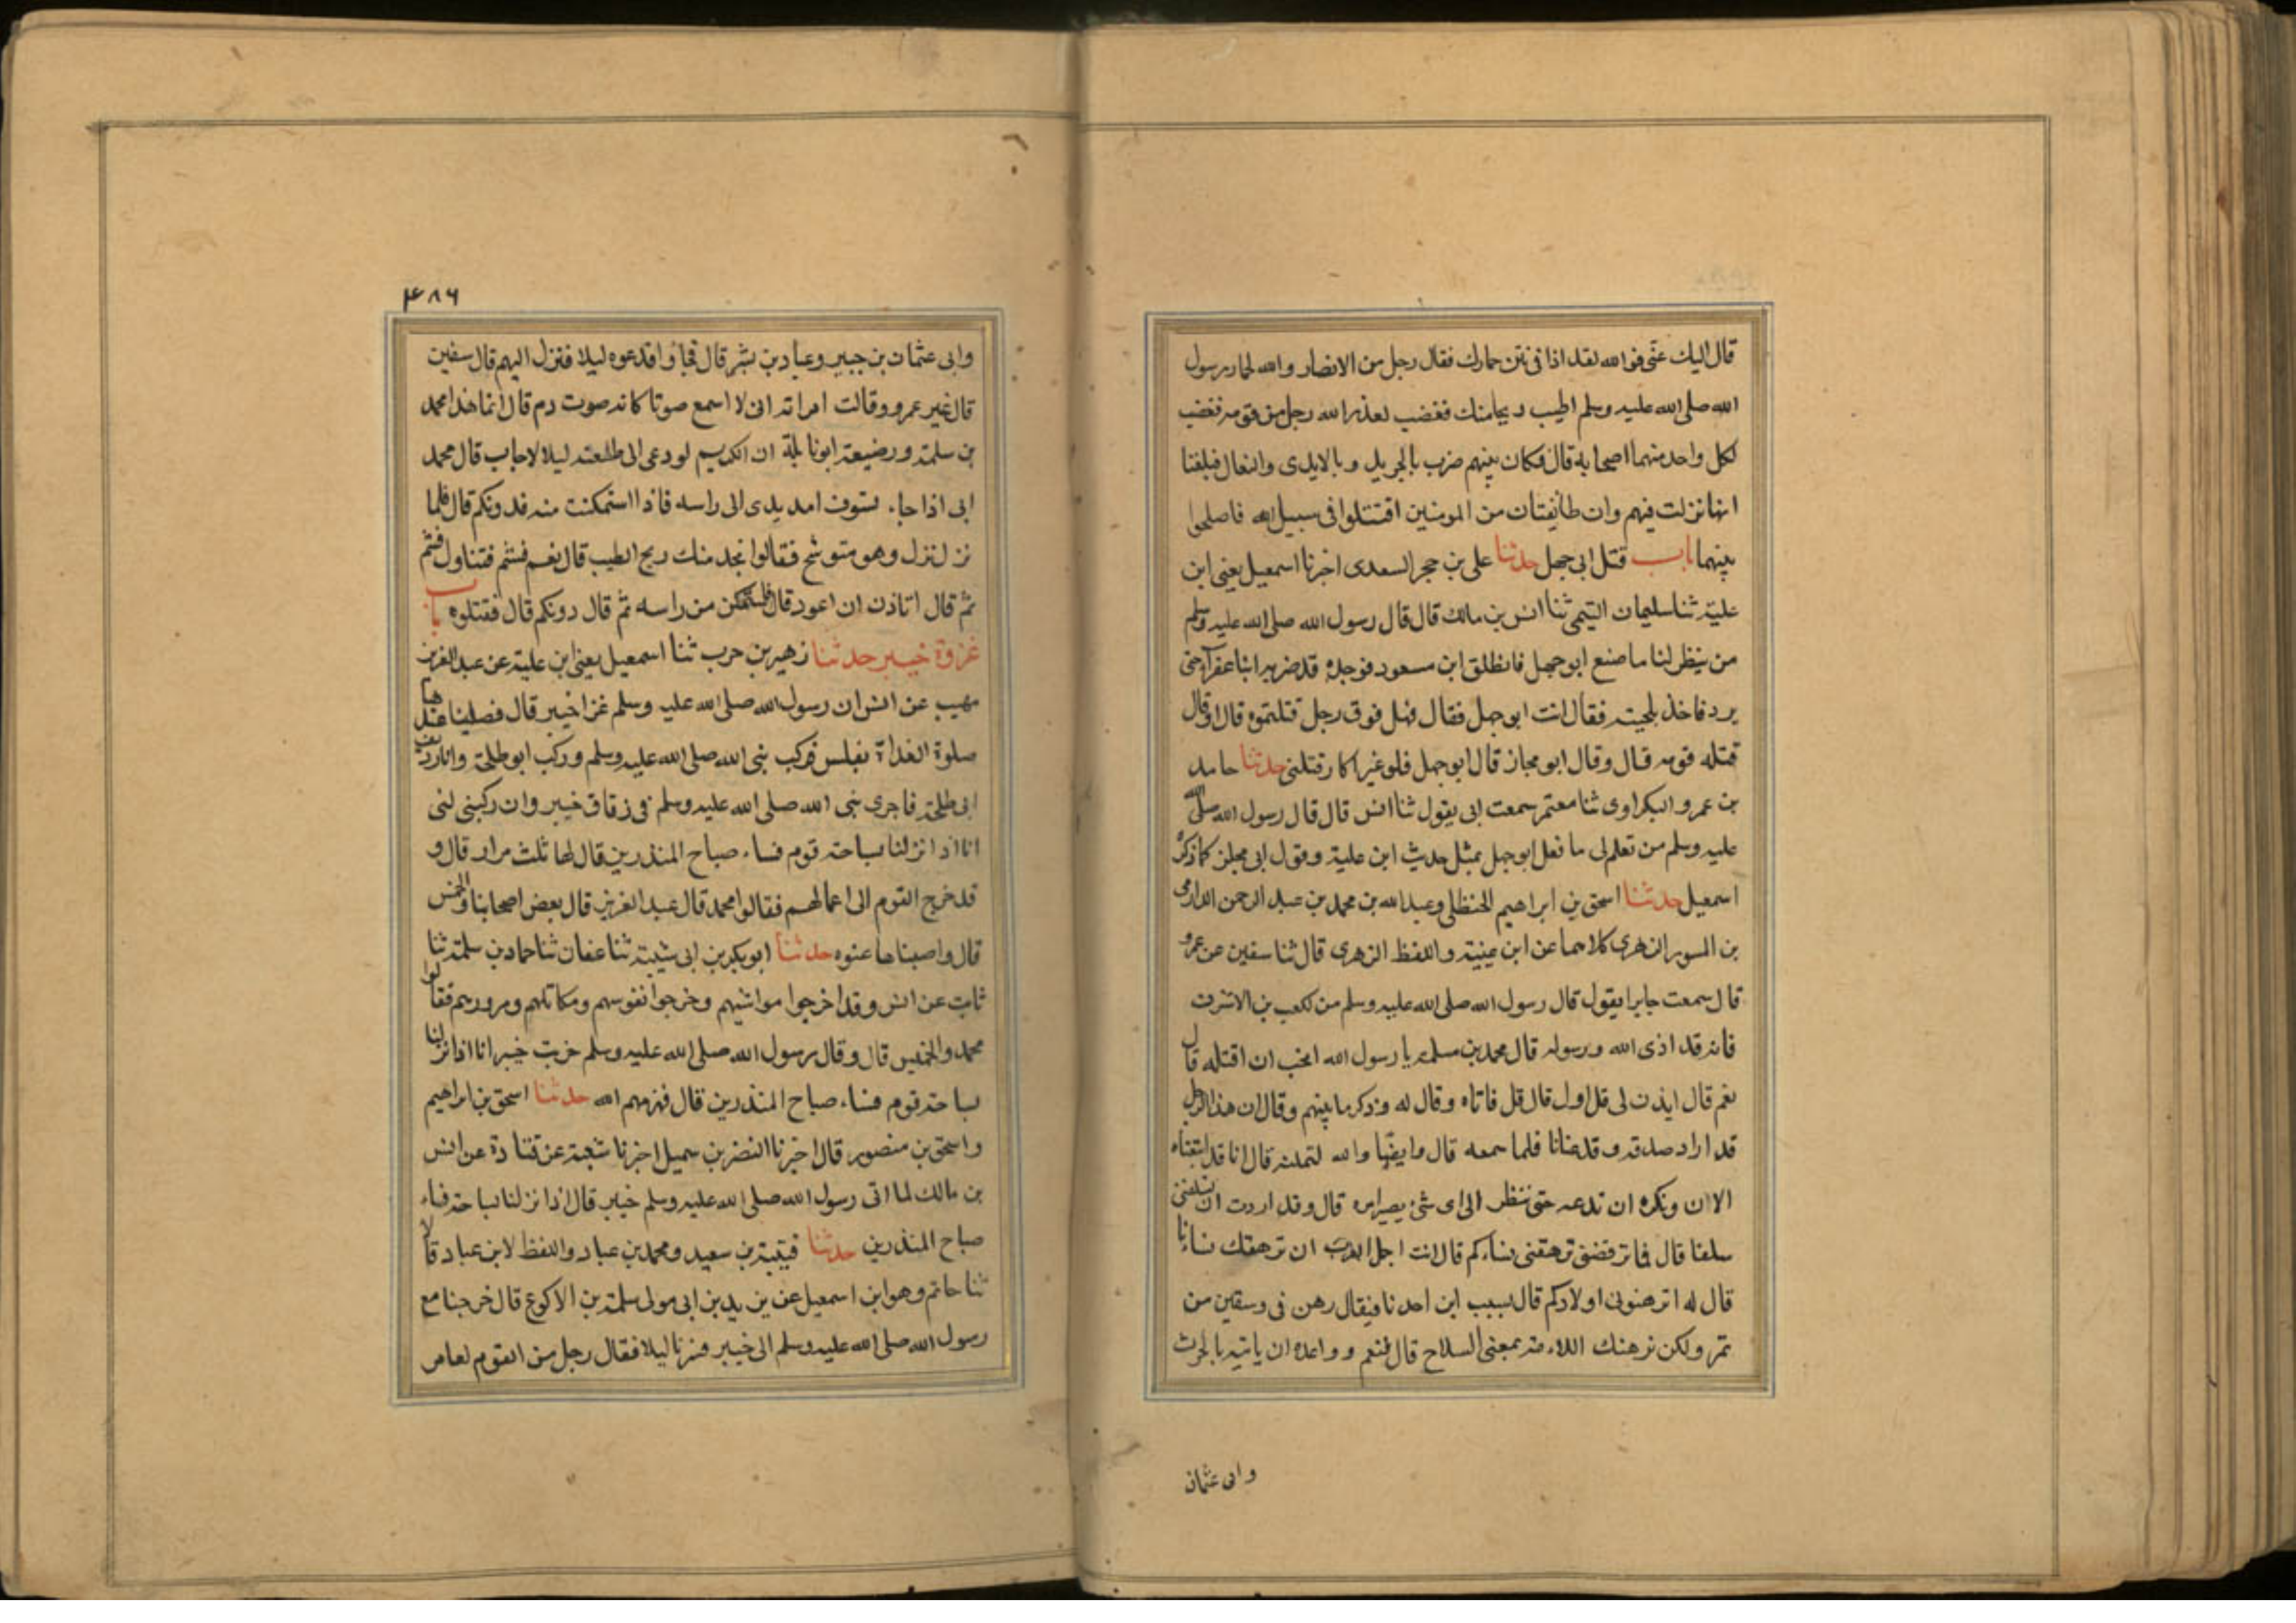 قال اليك عنى فوالله لقد اذانى نتن حمارك فقال رجل من الانصار والله لحمار رسول
الله صلى الله عليه وسلم اطيب ريحا منك فغضب لعبد الله رجل من قومه فغضب
لكل واحد منهما اصحابه قال فكان بينهم ضرب بالجريد وبالايدى والنعال فبلغنا
انها نزلت فيهم وان طائفتان من المومنين اقتتلوا فى سبيل الله فاصلحوا
بينهما باب قتل ابى جهل حدثنا على بن حجر السعدى اخبرنا اسمعيل يعنى ابن
علية ثنا سليمان التيمى ثنا انس بن مالك قال قال رسول الله صلى الله عليه وسلم
من ينظر لنا ما صنع ابو جهل فانطلق ابن مسعود فوجده قد ضربه ابنا عفرآ حتى
برد فاخذ بلحيته فقال انت ابو جهل فقال فهل فوق رجل قتلتموه قال او قال
قتله قومه قال وقال ابو مجاز قال ابو جهل فلو غير اكار قتلنى حدثنا حامد
بن عمرو البكراوى ثنا معتمر سمعت ابى يقول ثنا انس قال قال رسول الله صلى الله
عليه وسلم من تعلم لى ما فعل ابو جهل بمثل حديث ابن علية وقول ابى مجلز كما ذكره
اسمعيل حدثنا اسحق بن ابراهيم الحنظلى وعبد الله بن محمد بن عبد الرحمن الدارمى
بن المسور الزهرى كلاهما عن ابن عيينة واللفظ الزهرى قال ثنا سفين عن عمرو
قال سمعت جابرا يقول قال رسول الله صلى الله عليه وسلم من لكعب بن الاشرف
فانه قد اذى الله ورسوله قال محمد بن مسلمه يا رسول الله اتحب ان اقتله قال
نعم قال ايذن لى قل اول قال قل فاتاه وقال له وذكر ما بينهم وقال ان هذا الرجل
قد اراد صدقه وقد عنانا فلما سمعه قال وايضا والله لتملنه قال انا قد اتبعناه
الاان ونكره ان ندعه حتى ننظر الى اى شئ يصير امره قال وقد اردت ان تسلفنى
سلفا قال فما ترهننى ترهقنى نساءكم قال انت اجل العرب ان نرهقك نساءنا
قال له اترهنونى اولادكم قال يسبب ابن احدنا فيقال رهن فى وسقين من
تمر ولكن نرهنك اللاءمة بمعنى السلاح قال فنعم وواعده ان ياتيه بالحرث
وابى عثمان
۴۸۶
وابى عثمان بن جبير وعباد بن بشر قال فجاؤا فدعوه ليلا فنزل اليهم قال سفين
قال غير عمرو وقالت امراته انى لا اسمع صوتا كانه صوت دم قال انما هذا محمد
بن سلمة ورضيعة ابو نايلة ان الكريم لو دعى الى طلعنه ليلا لاجاب قال محمد
انى اذا جاء فسوف امد يدى الى راسه فاذا استمكنت منه فدونكم قال فلما
نزل نزل وهو متوشح فقالوا نجد منك ريح الطيب قال نعم فشم فتناول فشم
ثم قال اتاذن ان اعود قال فاستمكن من راسه ثم قال دونكم قال فقتلوه باب
غزوة خيبر حدثنا زهير بن حرب ثنا اسمعيل يعنى ابن علية عن عبد العزيز
صهيب عن انس ان رسول الله صلى الله عليه وسلم غزا خيبر قال فصلينا عندها
صلوة الغداة بغلس فركب نبى الله صلى الله عليه وسلم وركب ابو طلحة وانا رديف
ابى طلحة فاجرى نبى الله صلى الله عليه وسلم فى زقاق خيبر وان ركبتى لتى
انا اذا نزلنا بساحة قوم فساء صباح المنذرين قال لها ثلث مرار قال و
قد خرج القوم الى اعمالهم فقالوا محمد قال عبد العزيز قال بعض اصحابنا والخمس
قال واصبناها عنوه حدثنا ابو بكر بن ابى شيبة ثنا عفان ثنا حماد بن سلمة ثنا
ثابت عن انس وقد اخرجوا مواشيهم وخرجوا نفوسهم ومكاتلهم ومرورهم فقالوا
محمد والخميس قال وقال رسول الله صلى الله عليه وسلم خربت خيبر انا اذا نزلنا
بساحة قوم فساء صباح المنذرين قال فهزمهم الله حدثنا اسحق بن ابراهيم
واسحق بن منصور قال اخبرنا النضر بن شميل اخبرنا شعبة عن قتادة عن انس
بن مالك لما اتى رسول الله صلى الله عليه وسلم خيبر قال اذا نزلنا بساحة فساء
صباح المنذرين حدثنا قتيبة بن سعيد ومحمد بن عباد واللفظ لابن عباد قالا
ثنا حاتم وهو ابن اسمعيل عن يزيد بن ابى مولى سلمة بن الاكوع قال خرجنا مع
رسول الله صلى الله عليه وسلم الى خيبر فسرنا ليلا فقال رجل من القوم لعامر